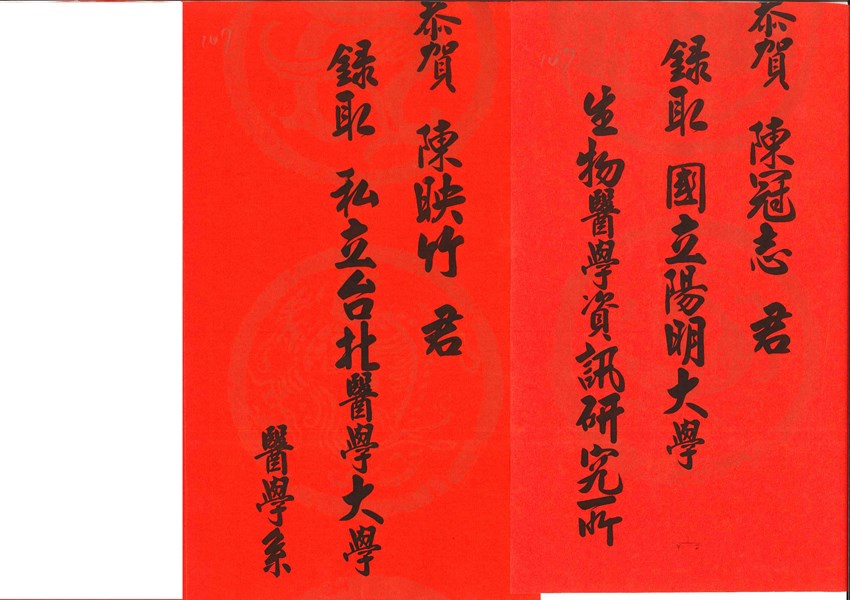 107
恭賀 陳冠志 君
録取 國立陽明大學
生物醫學資訊研究所
107
恭賀 陳映竹 君
録取 私立台北醫學大學
醫學系